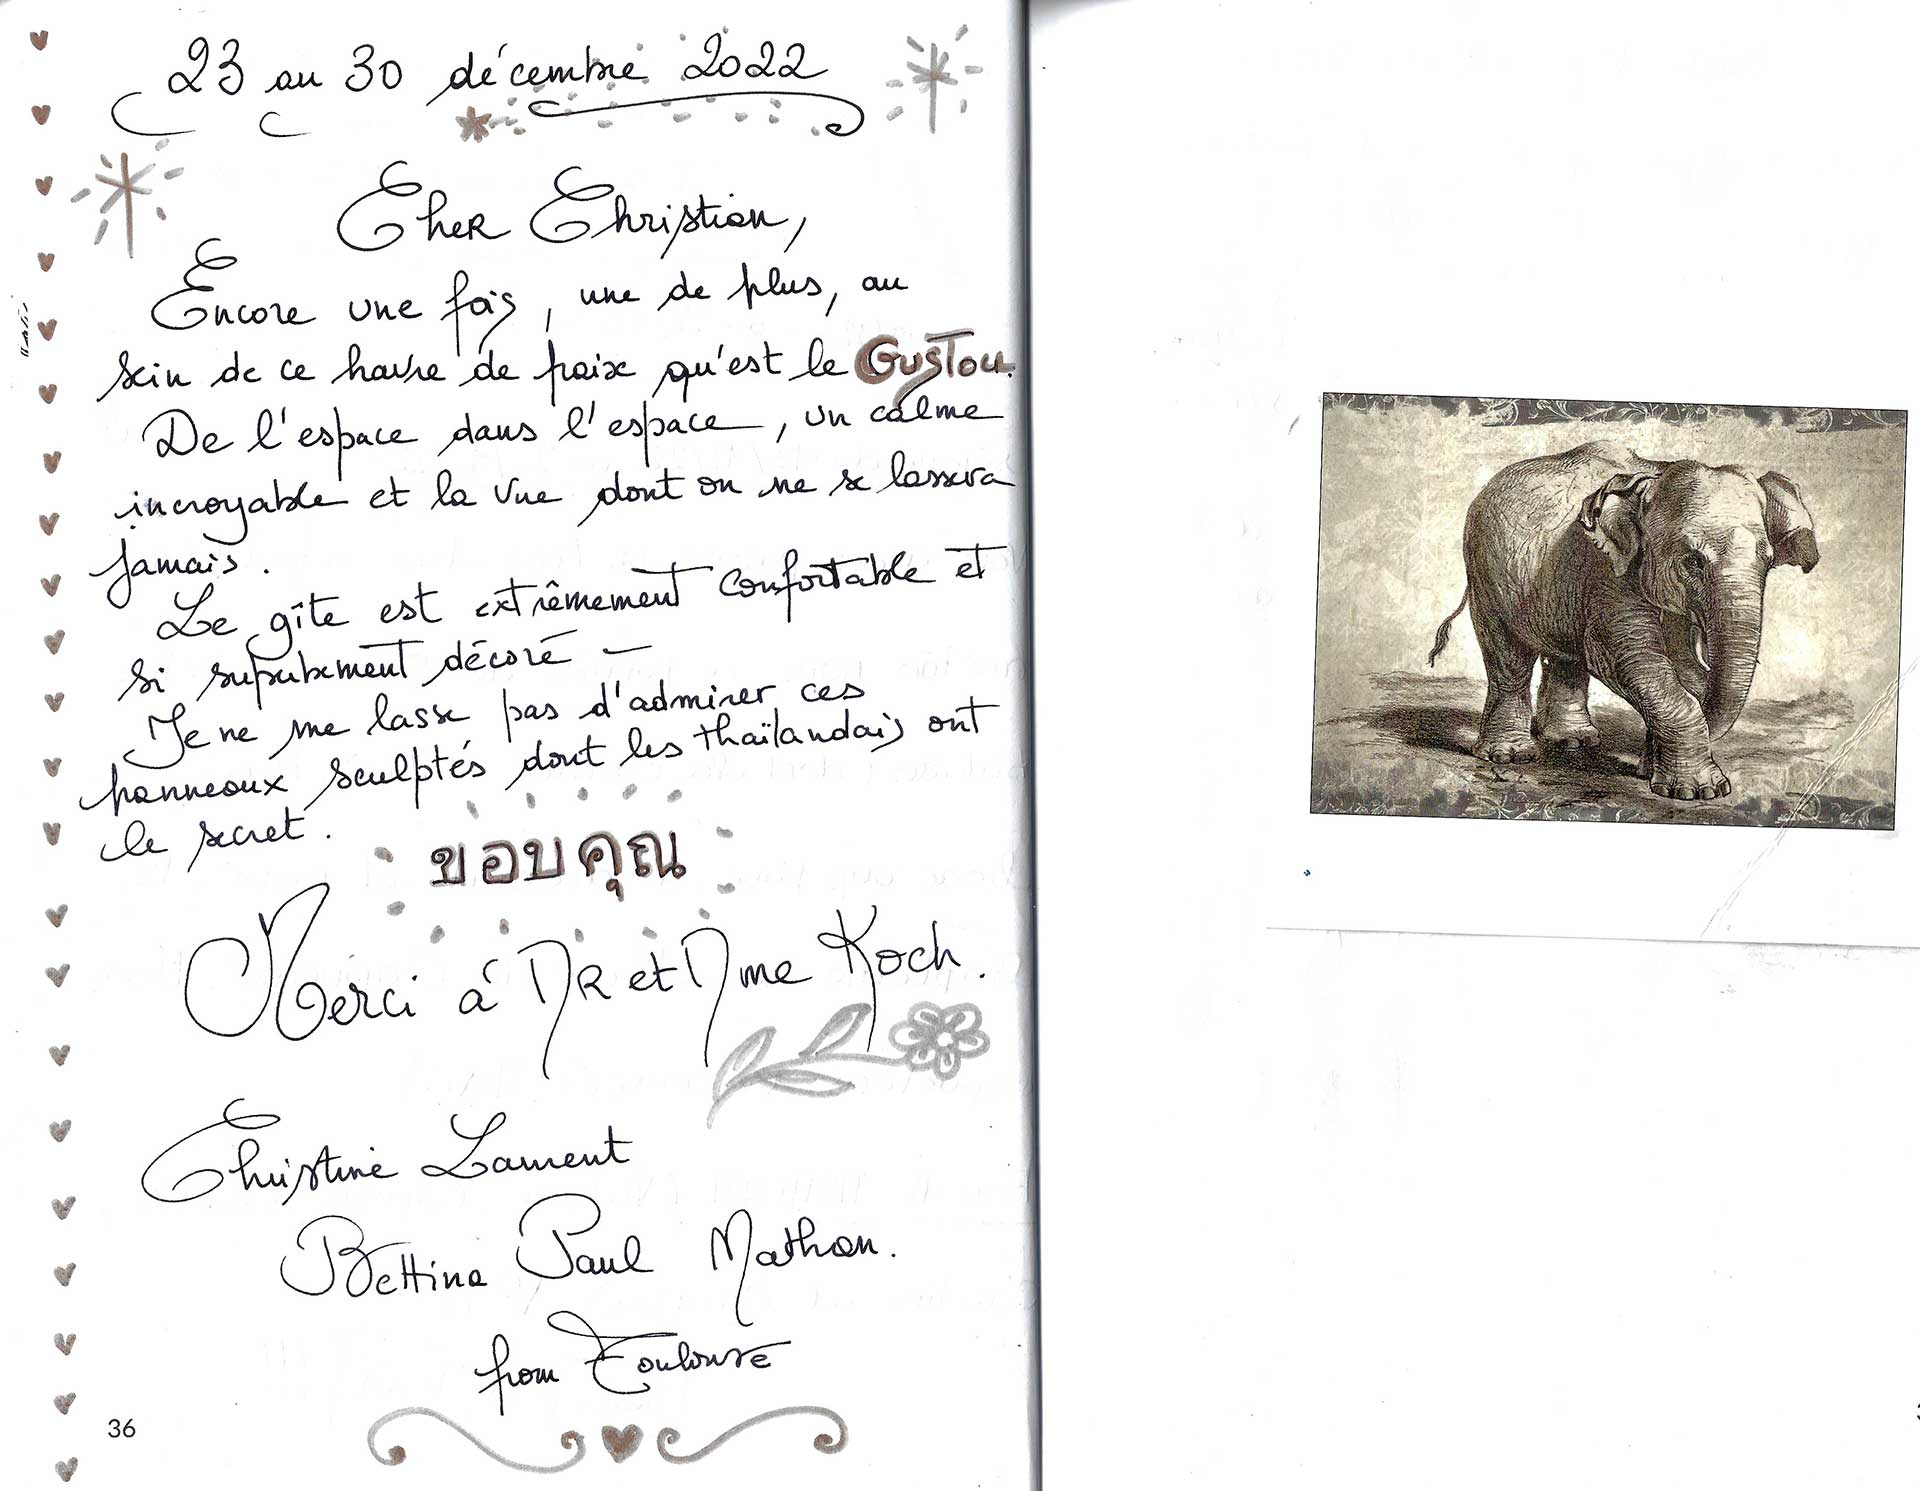 23 au 30 décembre 2022
Cher Christian,
Encore une fois, une de plus, au
sein de ce havre de paix qu'est le GUSTOU.
De l'espace dans l'espace, un calme
incroyable et la vue dont on ne se lassera
jamais.
Le gîte est extrêmement confortable et
si superbement décoré -
Je ne me lasse pas d'admirer ces
panneaux sculptés dont les thaïlandais ont
le secret.
ขอบคุณ
Merci à MR et Mme Koch.
Christine Laurent
Bettina Paul Mathan.
from Toulouse
36